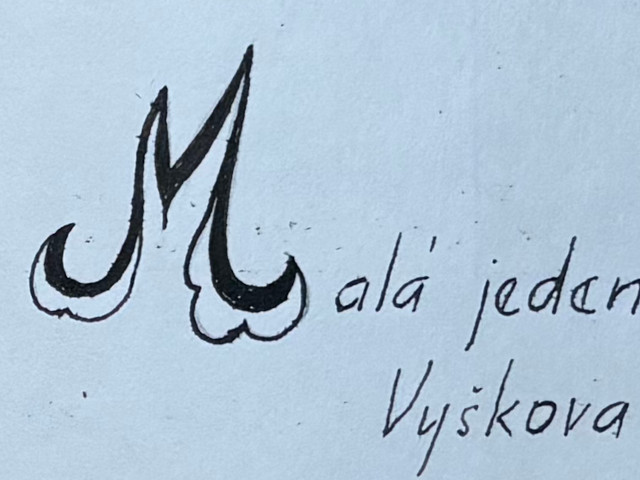 Malá jeden
Vyškova